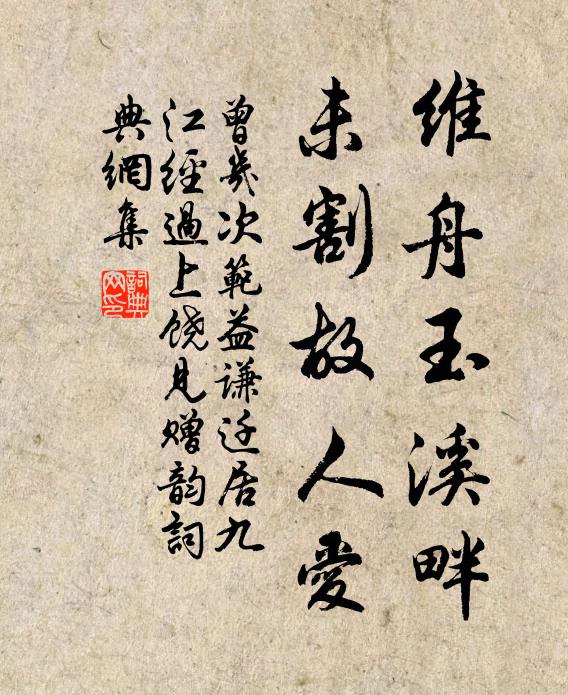 維舟玉溪畔
未割故人愛
曾幾次範益謙迁居九
江經過上饒見贈韵詞
典網集
詞典网印